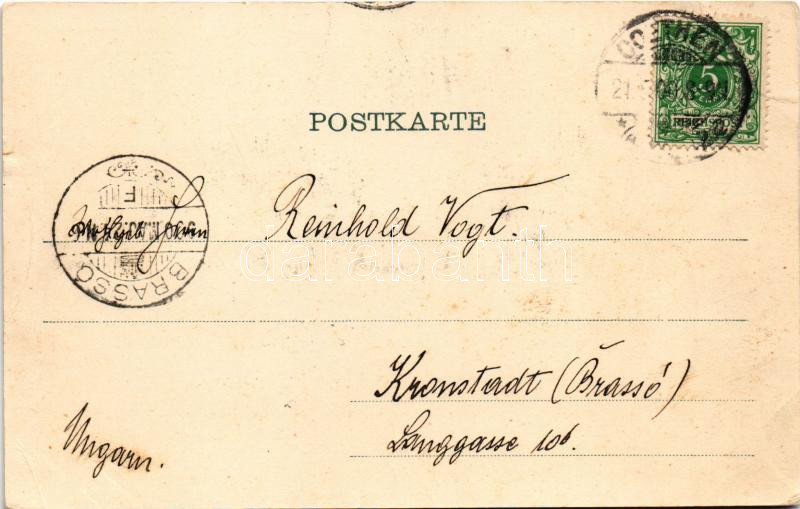 COETHEN
5
REICHSPOST
POSTKARTE
F
BRASSÓ
Herrn Reinhold Vogt.
Kronstadt (Brassó)
Langgasse 106.
Ungarn.
darabanth